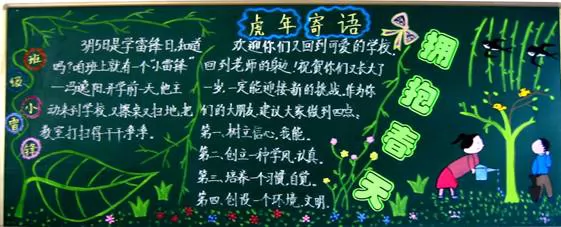 班级小雷锋
3月5日是学雷锋日,知道
吗?咱班上就有一个“小雷锋”
——冯逸阳,开学前一天,他主
动来到学校,又擦桌又扫地,把
教室打扫得干干净净。
虎年寄语
欢迎你们又回到可爱的学校,
回到老师的身边!祝贺你们又长大了
一岁,一定能迎接新的挑战。作为你
们的大朋友,建议大家做到四点:
第一、树立信心,我能。
第二、创立一种学风,认真。
第三、培养一个习惯,自觉。
第四、创设一个环境,文明。
拥抱春天